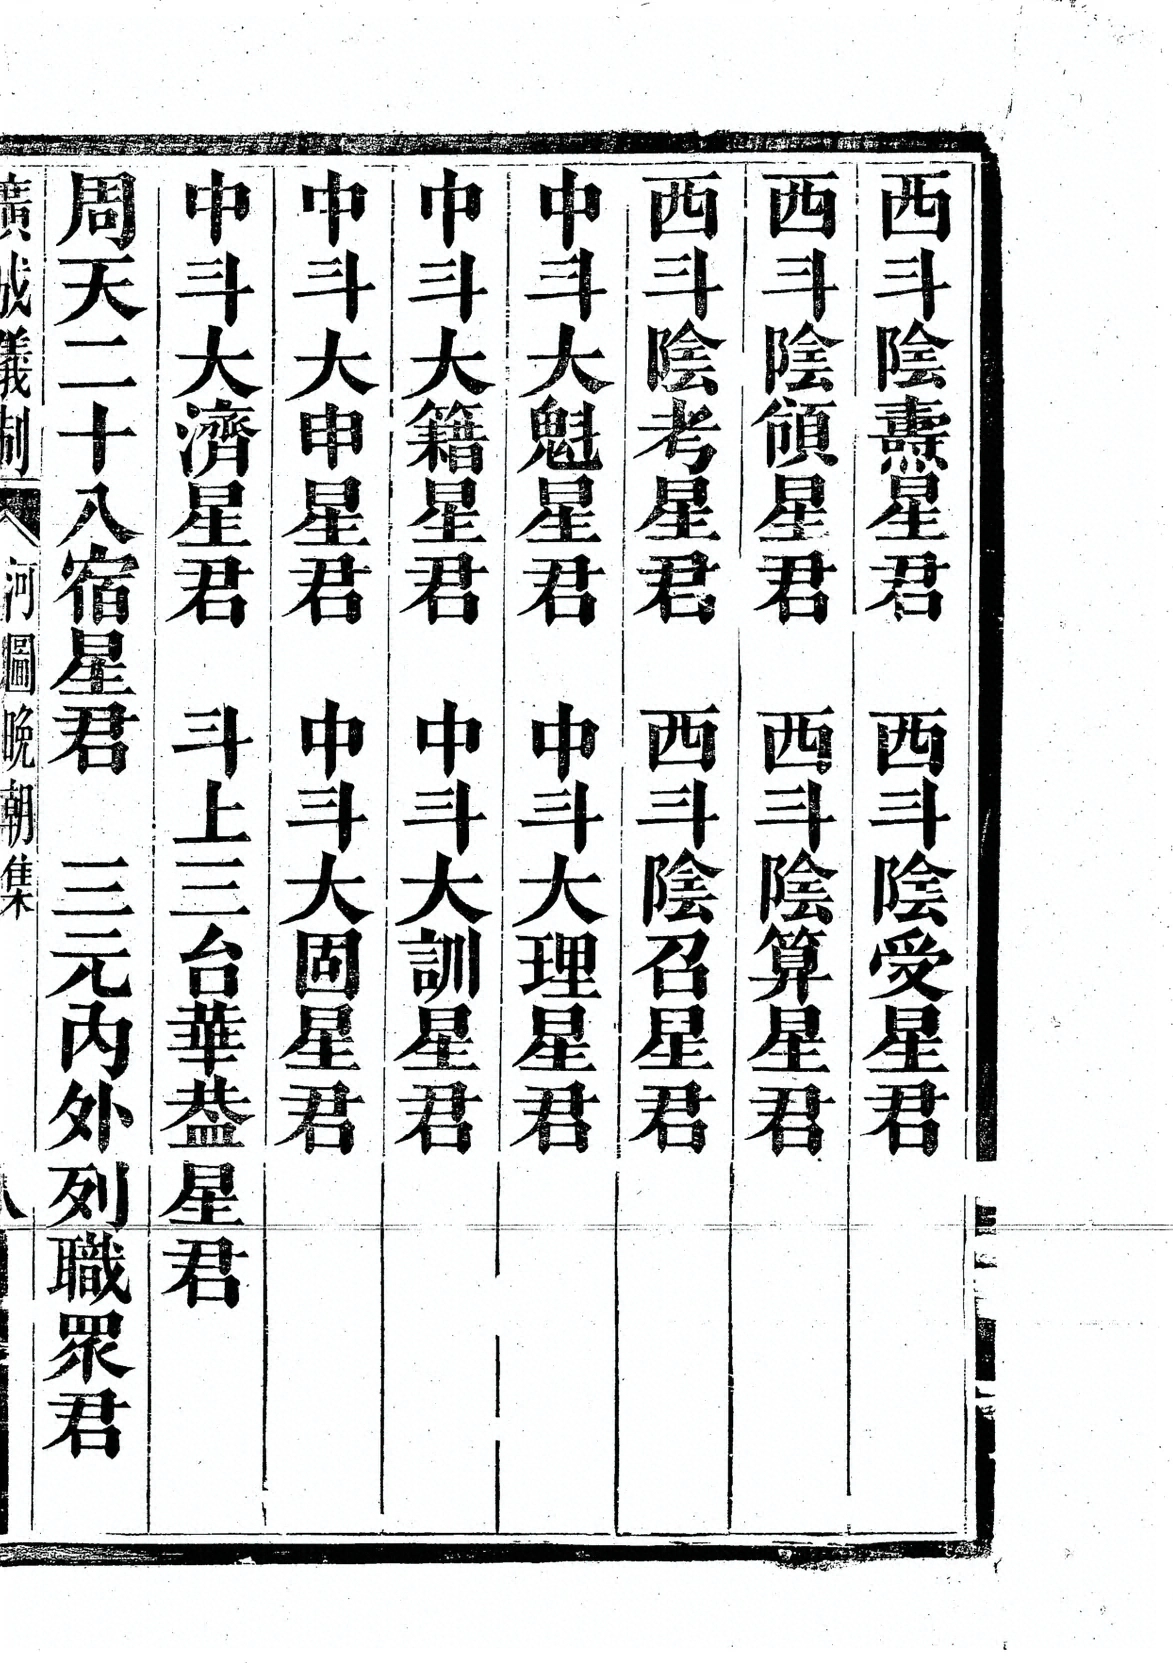 西斗陰燾星君　西斗陰受星君
西斗陰頎星君　西斗陰算星君
西斗陰考星君　西斗陰召星君
中斗大魁星君　中斗大理星君
中斗大籍星君　中斗大訓星君
中斗大申星君　中斗大固星君
中斗大濟星君　斗上三台華葢星君
周天二十八宿星君　三元內外列職眾君
廣成儀制　河圖晚朝集　八